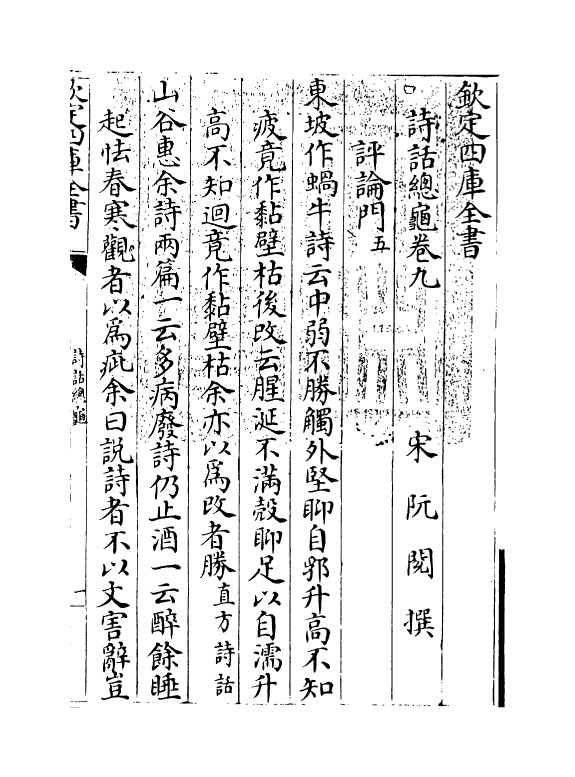 欽定四庫全書
詩話總龜卷九
宋阮閱撰
評論門五
東坡作蝸牛詩云中弱不勝觸外堅聊自郛升高不知
疲竟作黏壁枯後改云腥涎不滿殼聊足以自濡升
高不知迴竟作黏壁枯余亦以為改者勝直方詩話
山谷惠余詩兩篇一云多病廢詩仍止酒一云醉餘睡
起怯春寒觀者以為疵余曰說詩者不以文害辭豈
欽定四庫全書
詩話總龜